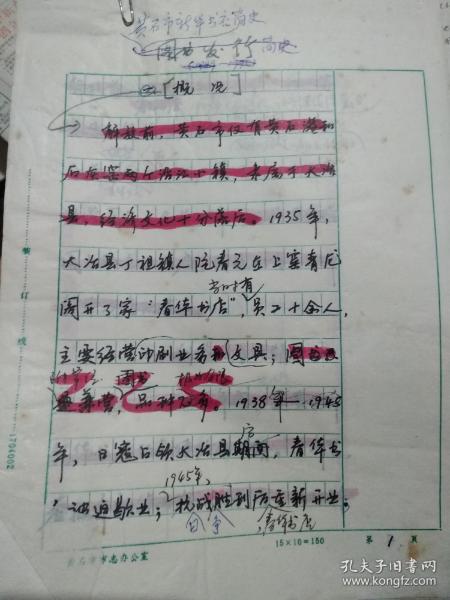 黄石市新华书店简史
图书发行简史
[概况]
解放前,黄石市仅有黄石港和
石灰窑两个沿江小镇,隶属于大冶
县,经济文化十分落后。1935年,
大冶县丁祖镇人阮春元在上窑青龙
当时有
阁开了家“春华书店”,员工十余人,
主要经营印刷业务和文具;图书
兼营,品种不多。1938年—1945
年,日寇占领大冶县期间,春华书
1945年,
被迫歇业;抗战胜利后重新开业;
春华书店
装订线
1704002
黄石市市志办公室
15×10=150
第1页
孔夫子旧书网